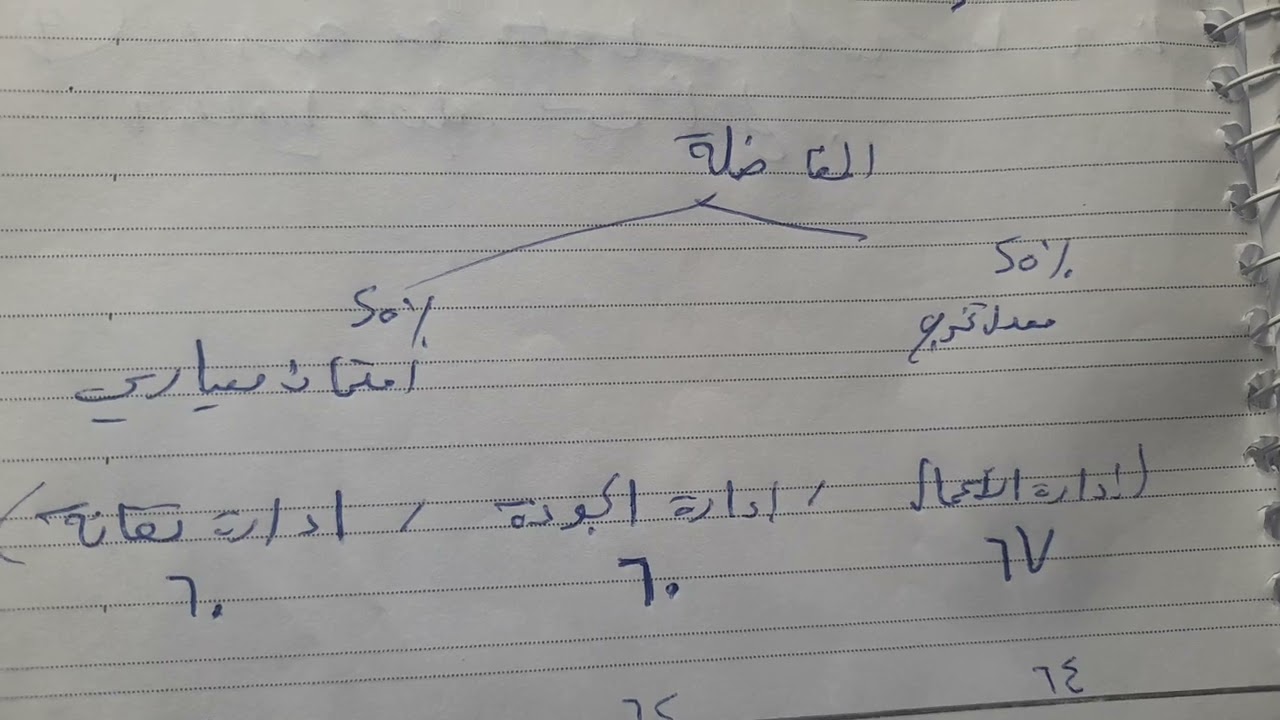 المفاضلة
50% 50%
معدل تخرج
امتحان معياري
(إدارة الأعمال / إدارة الجودة / ادارة تقانة)
٦٧ ٦٠ ٦٠
٦٤ ٦٢